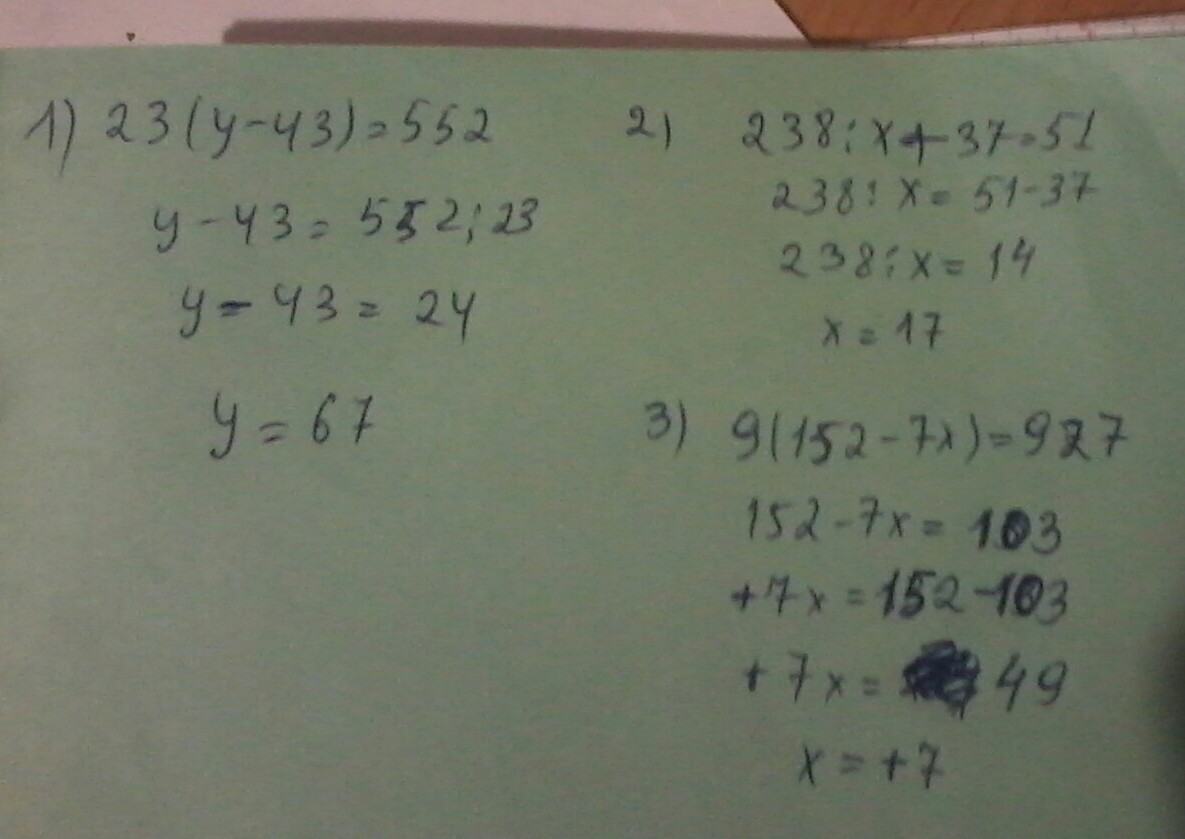 1) 23(y-43)=552
y-43=552:23
y-43=24
y=67
2) 238:x+37=51
238:x=51-37
238:x=14
x=17
3) 9(152-7x)=927
152-7x=103
+7x=152-103
+7x=49
x=+7